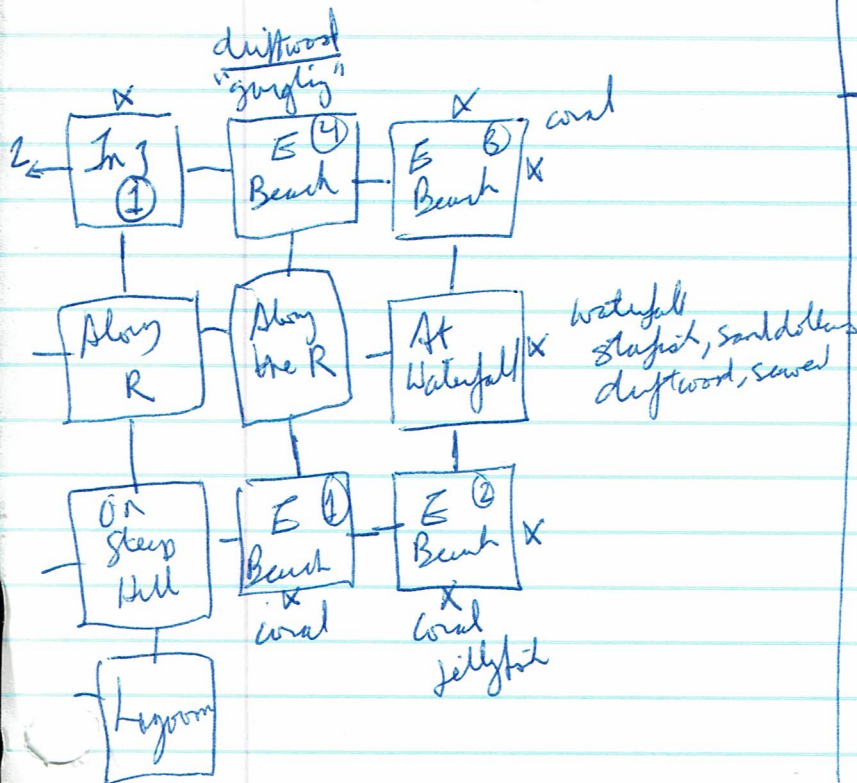 driftwood
"gurgling"
X
X
coral
2
In J
1
E 4
Beach
E 3
Beach
X
Along
R
Along
the R
At
Waterfall
X
waterfall
starfish, sanddollars
driftwood, sewer
On
Steep
Hill
E 1
Beach
E 2
Beach
X
X
coral
X
Coral
Jellyfish
Lagoon